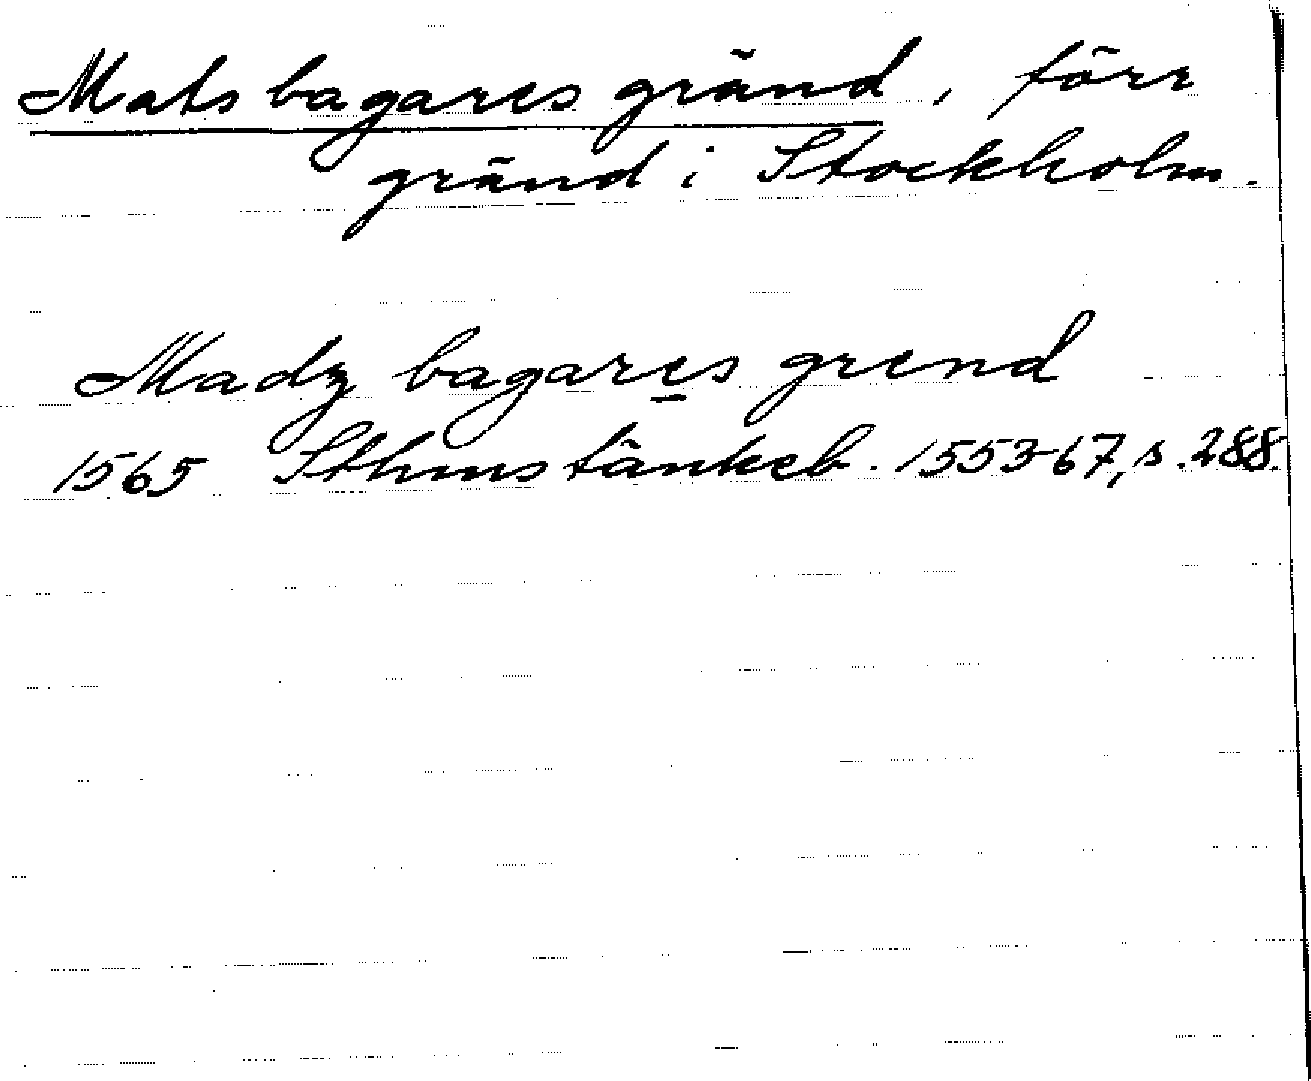 Mats bagares gränd, förr
gränd i Stockholm.
Madz bagares grend
1565 Sthms tänkeb. 1553-67, s. 288.